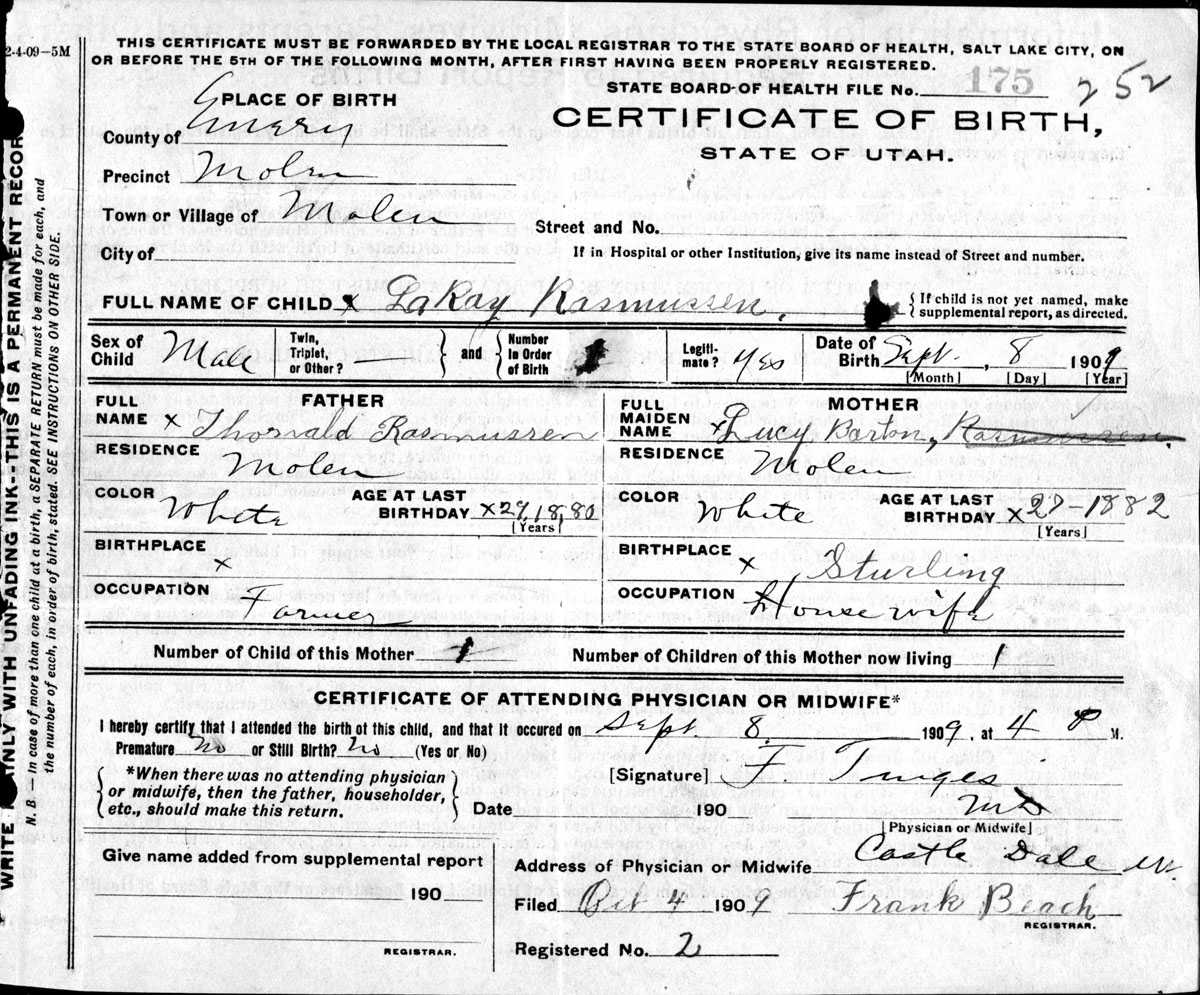 2-4-09—5M
THIS CERTIFICATE MUST BE FORWARDED BY THE LOCAL REGISTRAR TO THE STATE BOARD OF HEALTH, SALT LAKE CITY, ON
OR BEFORE THE 5TH OF THE FOLLOWING MONTH, AFTER FIRST HAVING BEEN PROPERLY REGISTERED.
STATE BOARD OF HEALTH FILE No. 175 252
PLACE OF BIRTH
CERTIFICATE OF BIRTH,
STATE OF UTAH.
County of Emery
Precinct Molen
Town or Village of Molen
Street and No.
City of
If in Hospital or other Institution, give its name instead of Street and number.
FULL NAME OF CHILD x LaRay Rasmussen.
{ If child is not yet named, make
supplemental report, as directed.
Sex of Child Male
Twin, Triplet, or Other? -
and
Number In Order of Birth 1
Legiti-mate? Yes
Date of Birth Sept. 8 1909
[Month] [Day] [Year]
FATHER
FULL NAME x Thorvald Rasmussen
RESIDENCE Molen
COLOR White
AGE AT LAST BIRTHDAY x 29, 1880
[Years]
BIRTHPLACE x
OCCUPATION Farmer
MOTHER
FULL MAIDEN NAME x Lucy Barton, Rasmussen.
RESIDENCE Molen
COLOR White
AGE AT LAST BIRTHDAY x 27-1882
[Years]
BIRTHPLACE x Sturling
OCCUPATION House wife
Number of Child of this Mother 1
Number of Children of this Mother now living 1
CERTIFICATE OF ATTENDING PHYSICIAN OR MIDWIFE*
I hereby certify that I attended the birth of this child, and that it occured on Sept. 8. 1909, at 4 P M.
Premature No or Still Birth? No (Yes or No)
*When there was no attending physician
or midwife, then the father, householder,
etc., should make this return.
[Signature] F
MD
Date 190
[Physician or Midwife]
Give name added from supplemental report
190
REGISTRAR.
Address of Physician or Midwife Castle Dale
Filed Oct 4 1909 Frank Beach
REGISTRAR.
Registered No. 2
WRITE PLAINLY WITH UNFADING INK--THIS IS A PERMANENT RECORD
N. B. — In case of more than one child at a birth, a SEPARATE RETURN must be made for each, and
the number of each, in order of birth, stated. SEE INSTRUCTIONS ON OTHER SIDE.